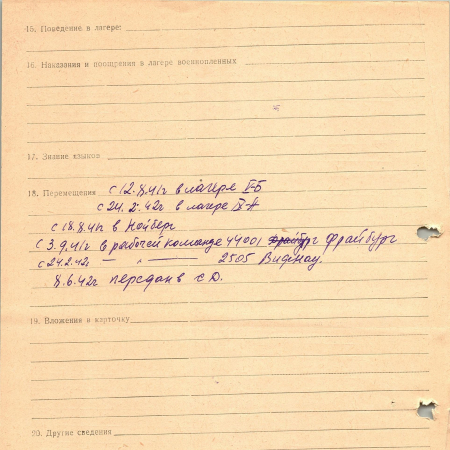 15. Поведение в лагере:
16. Наказания и поощрения в лагере военнопленных
17. Знание языков
18. Перемещения с 12.8.41г в лагере V-Б
с 24.2.42г в лагере V-А
с 18.8.41г в Нойберг
с 3.9.41г в рабочей команде 44001 Фрайбург
с 24.2.42г — " — 2505 Видмау
8.6.42г передан в СД.
19. Вложения в карточку
20. Другие сведения